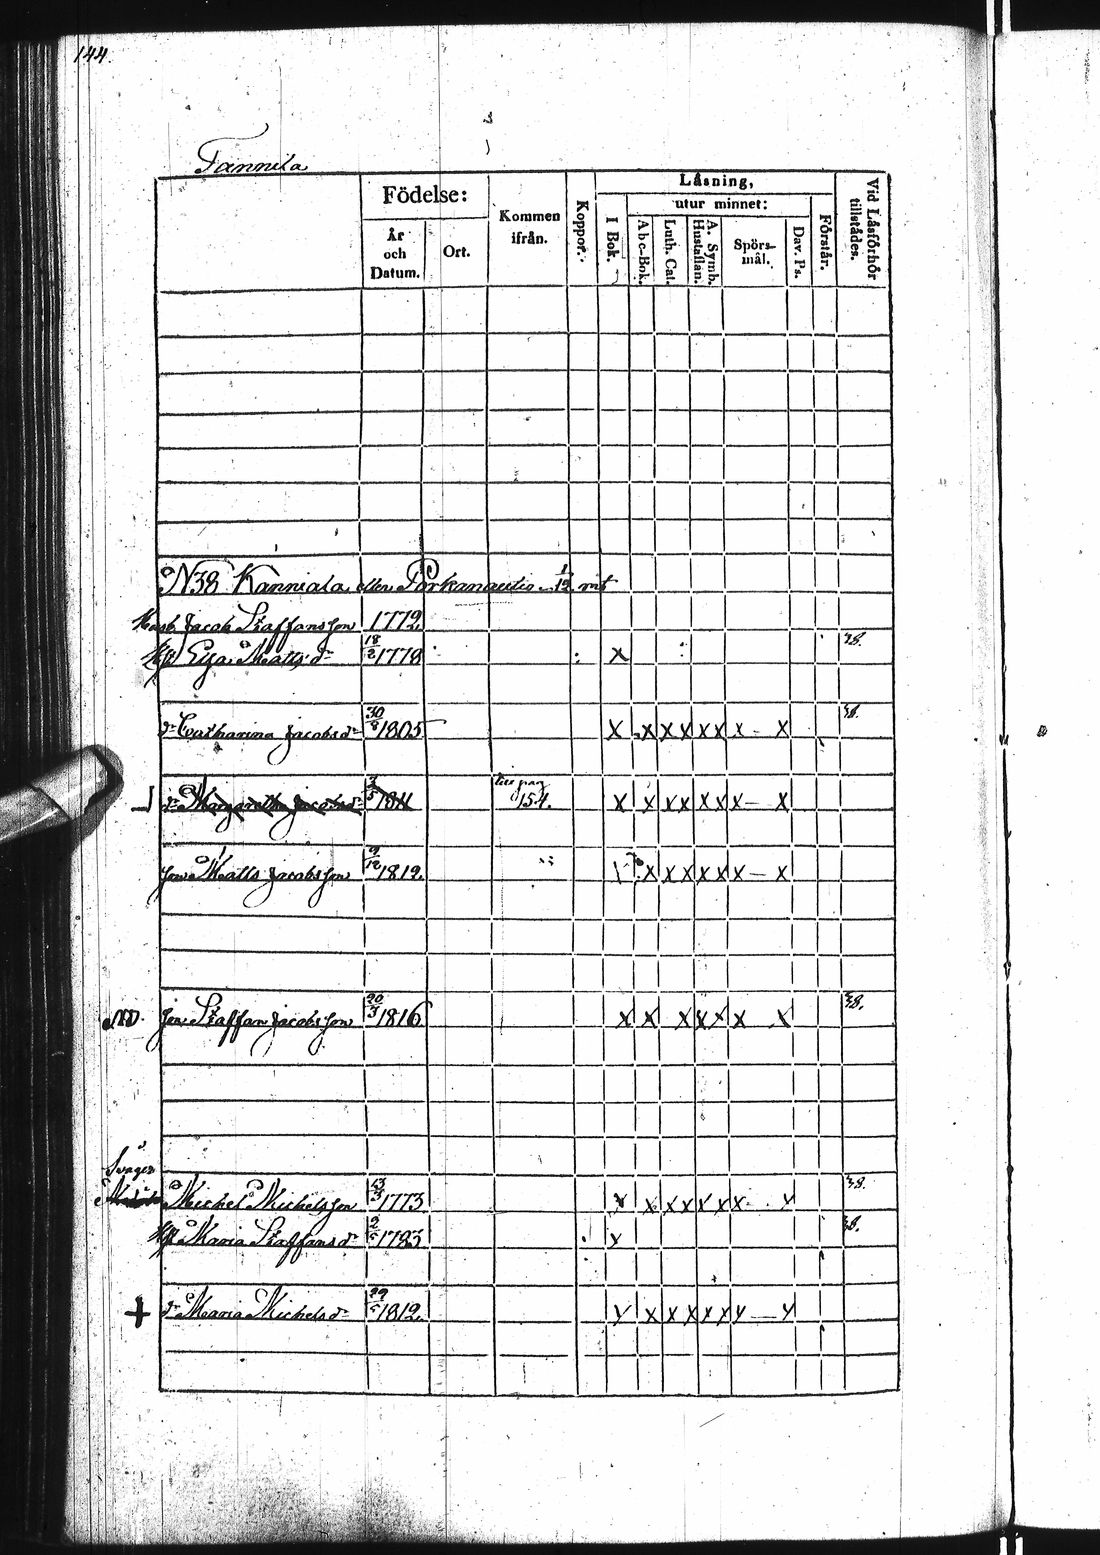 144.
Tannila
Födelse:
År och Datum.
Ort.
Kommen ifrån.
Koppor.
Läsning,
I Bok.
utur minnet:
Abc-Bok.
Luth. Cat.
A. Symb. Hustaflan.
Spörsmål.
Dav. Ps.
Förstår.
Vid Läsförhör tillstädes.
N38 Kanniala eller Porkanautio 1/12 mt
Husb. Jacob Staffansson 1772.
Hu Lisa Mattsdr 18/2 1778 x 38.
dr Catharina Jacobsdr 30/8 1805 x x x x x x x - x 38.
dr Margaretha Jacobsdr 3/5 1811 till pag 154. x x x x x x x — x
son Matts Jacobsson 9/12 1812. x x x x x x — x
ND. son Staffan Jacobsson 20/3 1816 x x x x x x x 38.
Svåger
Michel Michelsson 13/3 1773 x x x x x x x x 38.
Hu Maria Staffansdr 2/5 1783 x 38.
+ dr Maria Michelsdr 29/5 1812. x x x x x x x — x